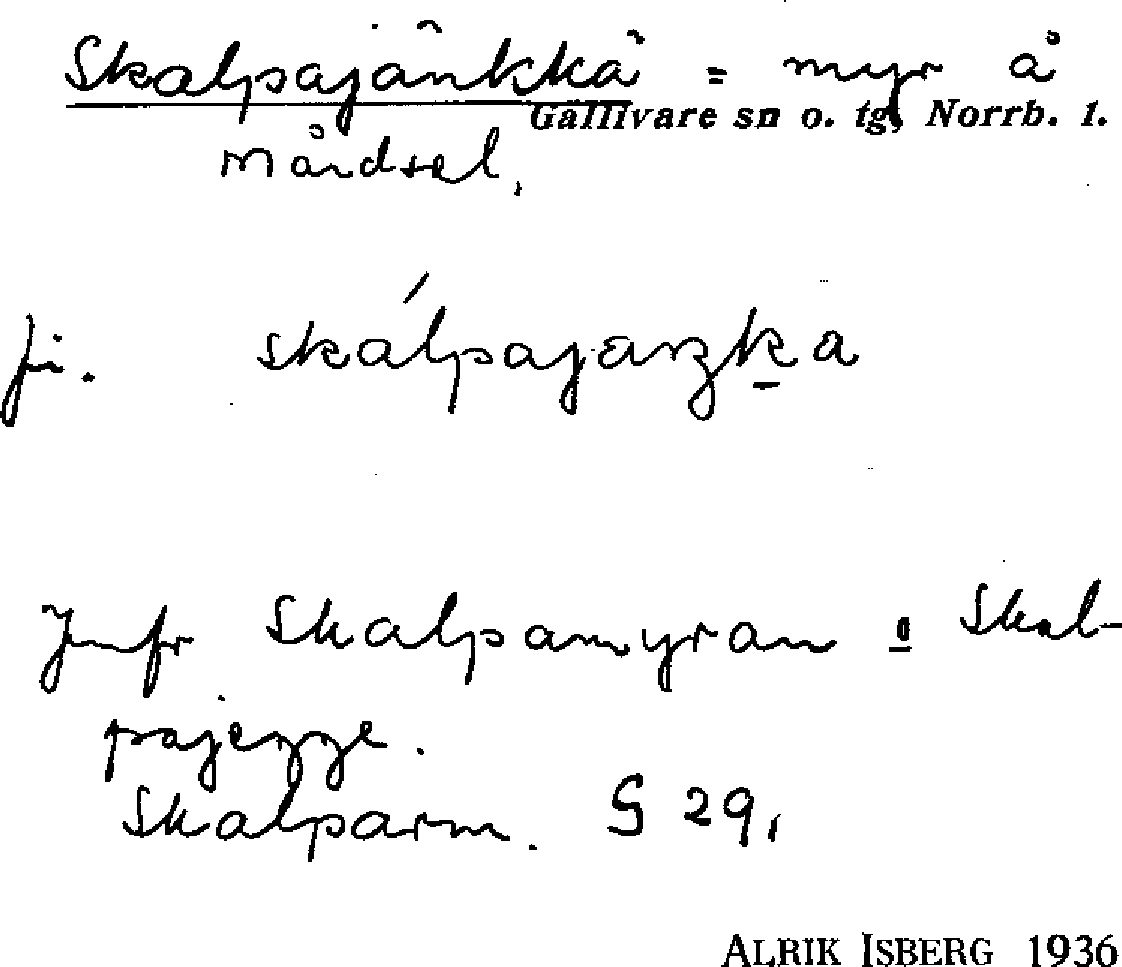 Skalpajänkkä = myr å
Gällivare sn o. tg, Norrb. l.
Mårdsel.
fi. skálpajaŋka
Jmfr Skalpamyran o Skal-
pajegge.
Skalparm. S 29,
ALRIK ISBERG 1936